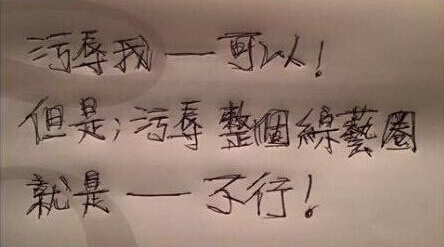 污辱我一可以！
但是；污辱整個綜藝圈
就是一不行！